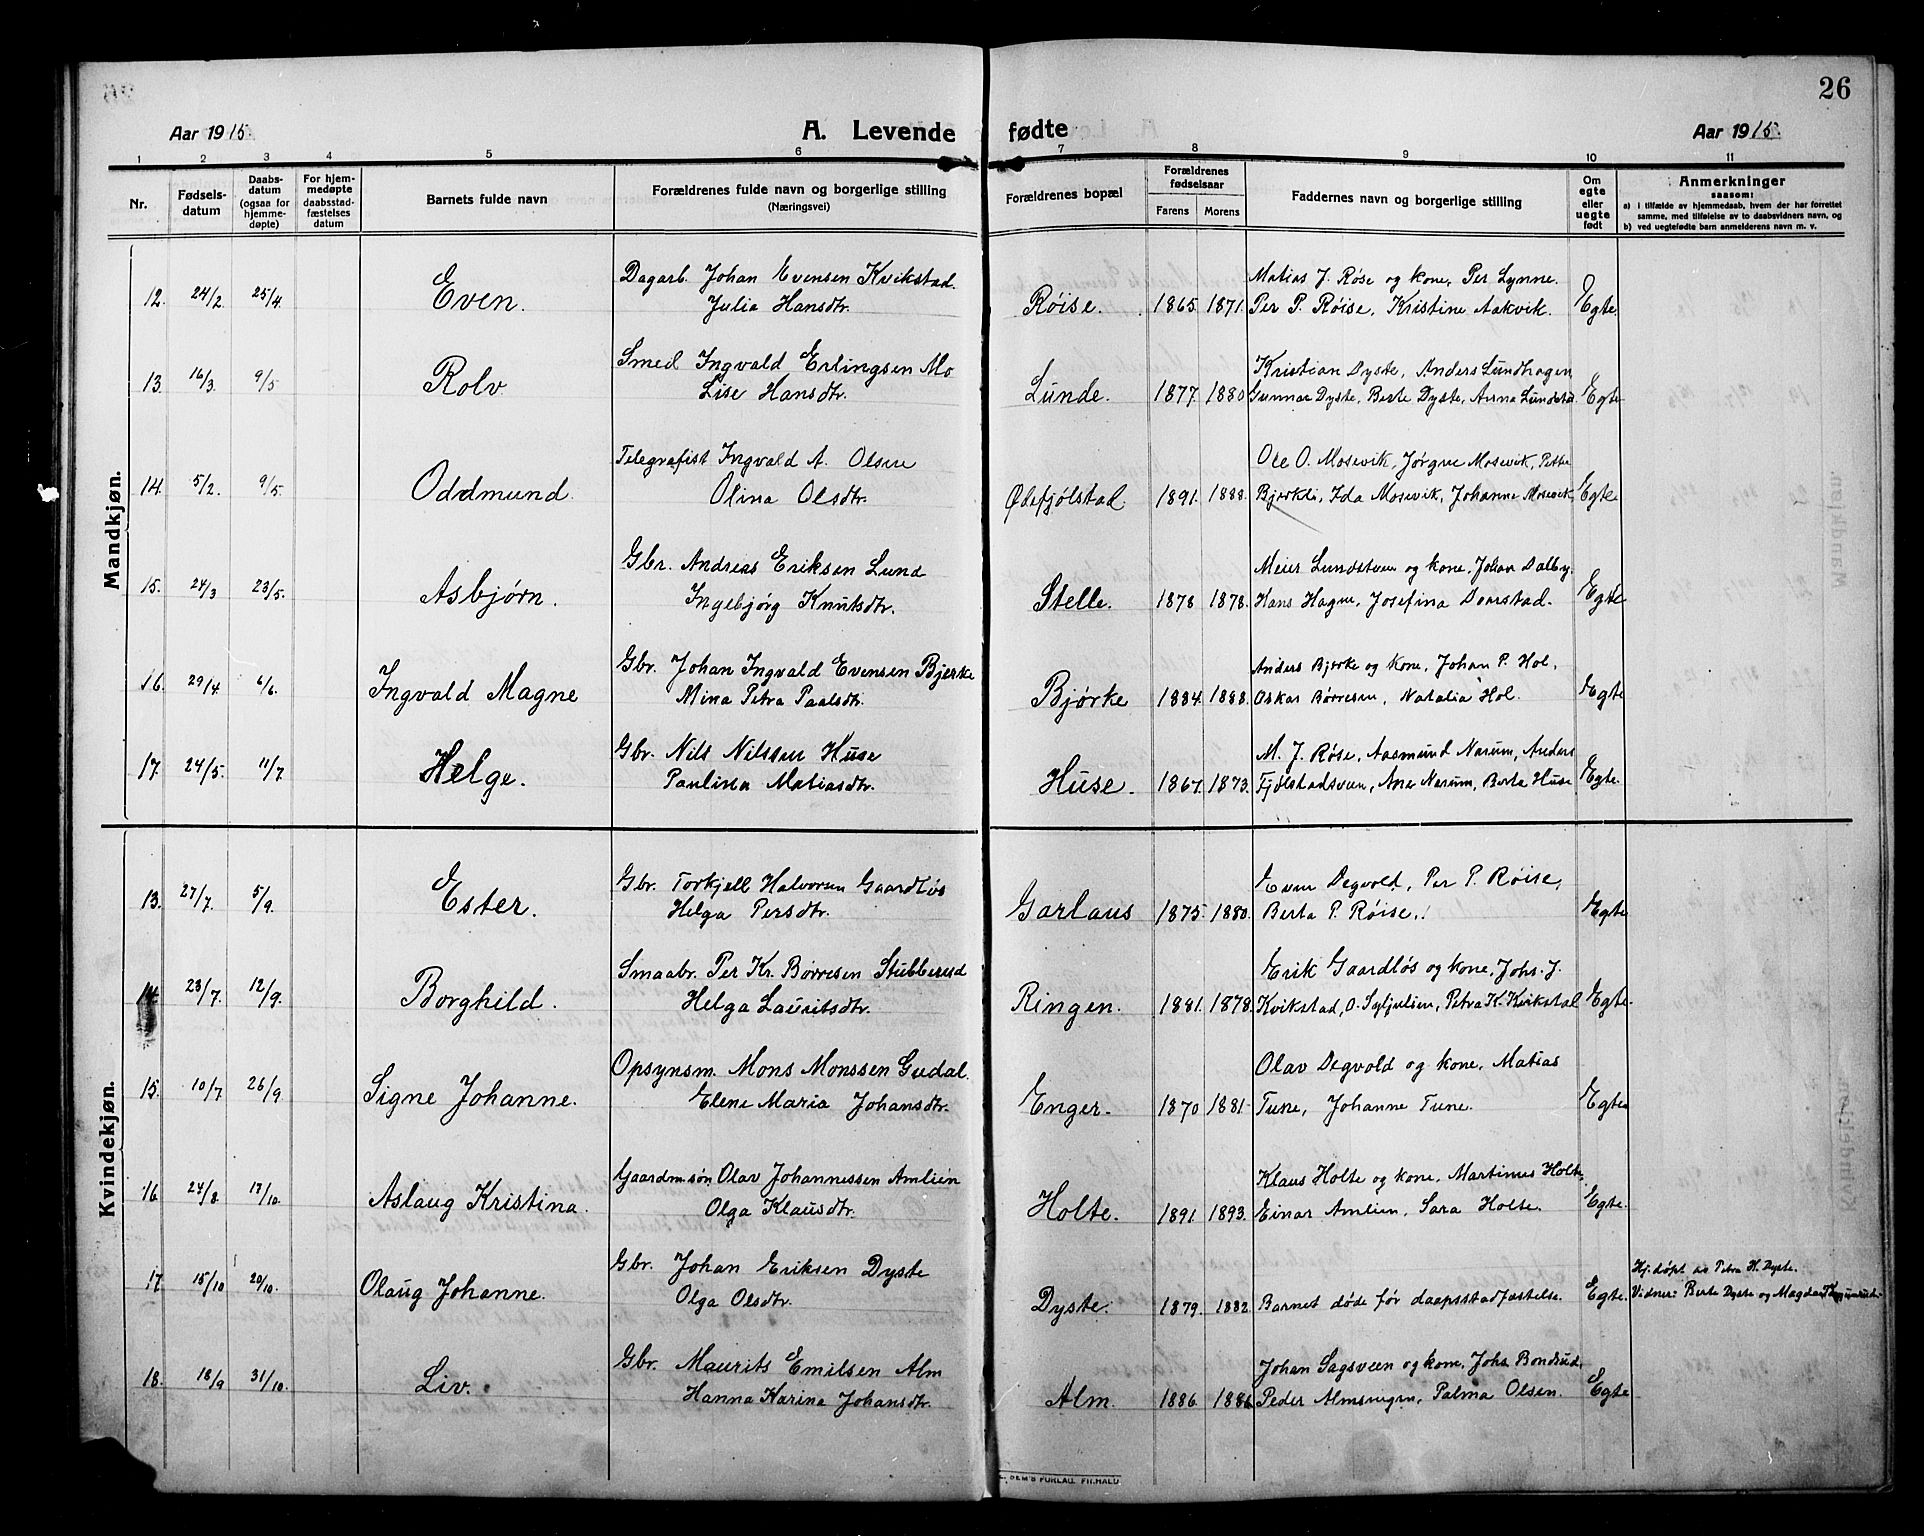 26
Aar 1915.
A. Levende fødte
Aar 1915.
1 2 3 4 5 6 7 8 9 10 11
Nr.
Fødsels-
datum
Daabs-
datum
(ogsaa for
hjemme-
døpte)
For hjem-
medøpte
daabsstad-
fæstelses
datum
Barnets fulde navn
Forældrenes fulde navn og borgerlige stilling
(Næringsvei)
Forældrenes bopæl
Forældrenes
fødselsaar
Farens Morens
Faddernes navn og borgerlige stilling
Om
egte
eller
uegte
født
Anmerkninger
saasom:
a) i tilfælde av hjemmedaab, hvem der har forrettet
samme, med tilføielse av to daabsvidners navn, og
b) ved uegtefødte barn anmelderens navn m. v.
Mandkjøn.
Dagarb. Johan Evensen Kvikstad. Matias J. Røse og kone, Per Lynne.
12. 24/2. 25/4. Even. Julia Hansdtr. Røise. 1865. 1871. Per P. Røise, Kristine Aakvik. Egte.
Smed Ingvald Erlingsen Mo Kristian Dyste, Anders Lundhagen
13. 16/3. 9/5 Rolv Lise Hansdtr. Lunde. 1877. 1880 Gunnar Dyste, Berte Dyste, Anna Lundstad. Egte
Telegrafist Ingvald A. Olsen Ole O. Mosevik, Jørgen Mosevik, Petter
14. 5/2. 9/5. Oddmund. Olina Olsdtr. 1891. 1888. Ida Mosevik, Johanne Mosevik, Egte
Gbr. Andreas Eriksen Lund Meier Lundstuen og kone, Johan Dalby,
15. 24/3 23/5. Asbjørn. Ingebjørg Knutsdtr. Stelle. 1878 1878. Hans Hagen, Josefina Domstad. Egte
Gbr. Johan Ingvald Evensen Bjerke Anders Bjerke og kone, Johan P. Hol,
16. 29/4 6/6. Ingvald Magne Mina Petra Paalsdtr. Bjørke 1884. 1888. Oskar Børresen, Natalia Hol. Egte
Gbr. Nils Nilssen Huse M. J. Røse, Aasmund Narum, Anders
17. 24/5. 11/7 Helge. Paulina Matiasdtr. Huse. 1867. 1873. Fjølstadsveen, Ane Narum, Berta Huse Egte.
Kvindekjøn.
Gbr. Torkjell Halvorsen Gaardløs Even Degvold, Per P. Røise,
13. 27/7. 5/9. Ester. Helga Persdtr. Garlaus 1875. 1880. Berta P. Røise. Egte
Smaabr. Per Kr. Børresen Stubberud Erik Gaardløs og kone, Johs. J.
14. 23/7. 12/9. Borghild. Helga Lauritsdtr. Ringen. 1881. 1878. Kvikstad, O. Syljulsen, Petra K. Kvikstad Egte.
Opsynsm. Mons Monssen Gudal. Olav Degvold og kone, Matias
15. 10/7. 26/9. Signe Johanne. Elene Maria Johansdtr. Enger. 1870 1881. Tune, Johanne Tune. Egte
Gaardmsøn Olav Johannessen Amlien Klaus Holte og kone, Martinus Holte,
16. 24/8 17/10. Aslaug Kristina. Olga Klausdtr. Holte. 1891. 1893. Einar Amlien, Sara Holte. Egte.
Gbr. Johan Eriksen Dyste Hj. døpt av Petra H. Dyste.
17. 15/10 20/10. Olaug Johanne. Olga Olsdtr. Dyste. 1879. 1882. Barnet døde før daapsstadfæstelse. Egte. Vidner: Berte Dyste og Magda
Gbr. Maurits Emilsen Alm Johan Sagsveen og kone, Johs. Bondrud,
18. 18/9 31/10. Liv. Hanna Karina Johansdtr. Alm. 1886. 1886. Peder Almsengen, Palma Olsen. Egte
SEM'S FORLAG, FR.HALD